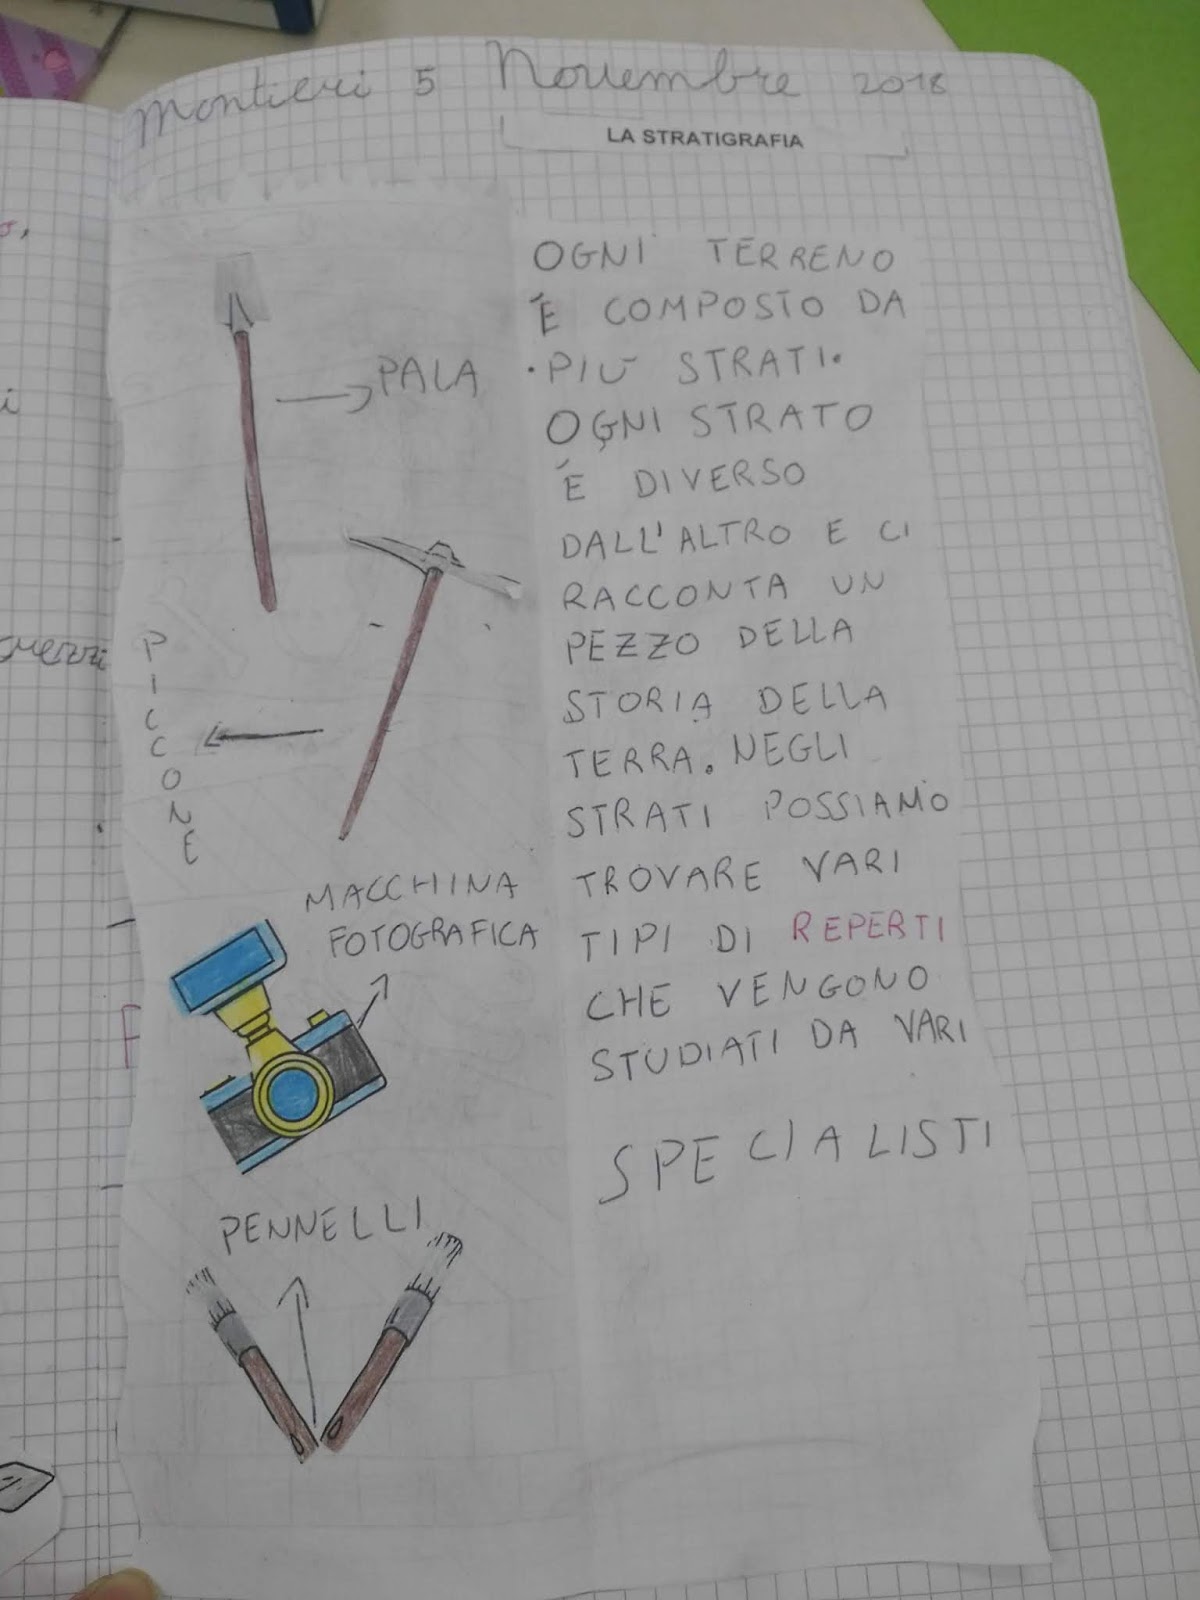 Montieri 5 Novembre 2018
LA STRATIGRAFIA
PALA
PICCONE
MACCHINA
FOTOGRAFICA
PENNELLI
OGNI TERRENO
É COMPOSTO DA
PIÙ STRATI.
OGNI STRATO
É DIVERSO
DALL'ALTRO E CI
RACCONTA UN
PEZZO DELLA
STORIA DELLA
TERRA. NEGLI
STRATI POSSIAMO
TROVARE VARI
TIPI DI REPERTI
CHE VENGONO
STUDIATI DA VARI
SPECIALISTI